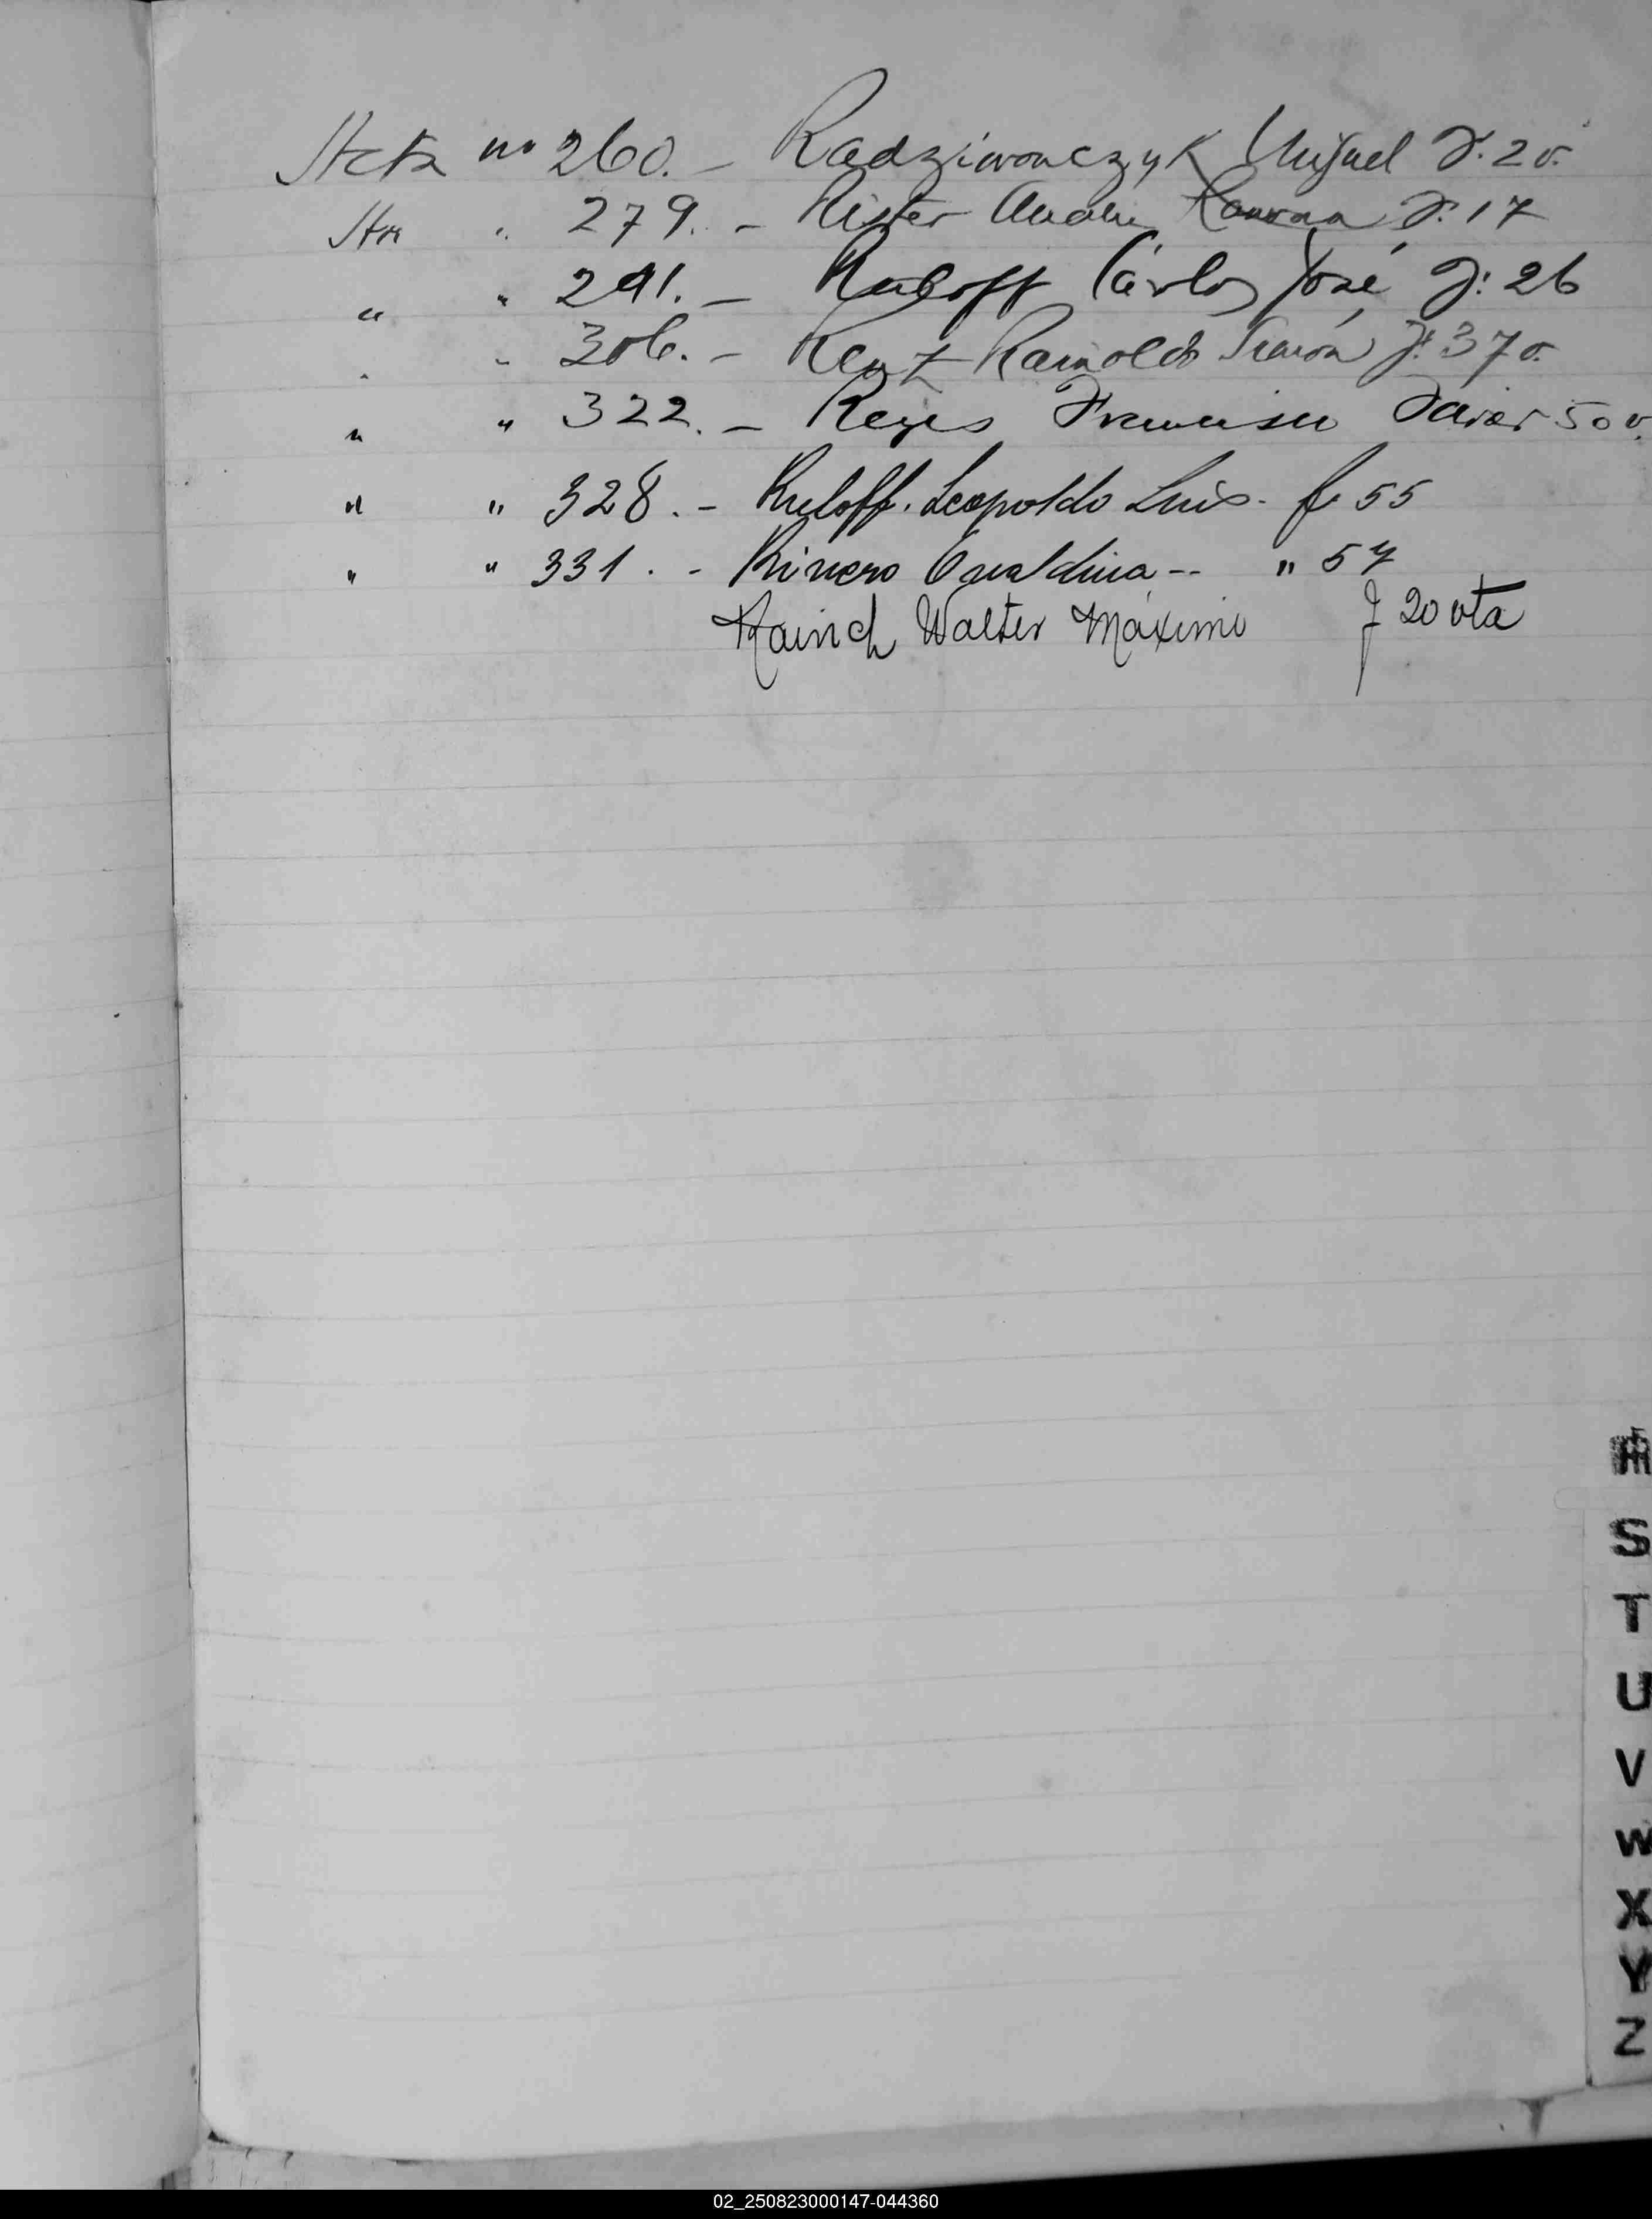 Acta nº 260. - Radziwonczyk Miguel F. 20.
Acta " 279. - Rister Ramona F. 17
" " 291. - Ruloff Cárlos José F: 26
" " 306. - Renz Ramoldo Simón F: 37 v.
" " 322. - Reyes Francisco Javier 50 v.
" " 328. - Ruloff. Leopoldo Luis - f. 55
" " 331. - Rivero Evaldina -- " 57
Rainch Walter Máximo f 20 vta
S
T
U
V
W
X
Y
Z
02_250823000147-044360